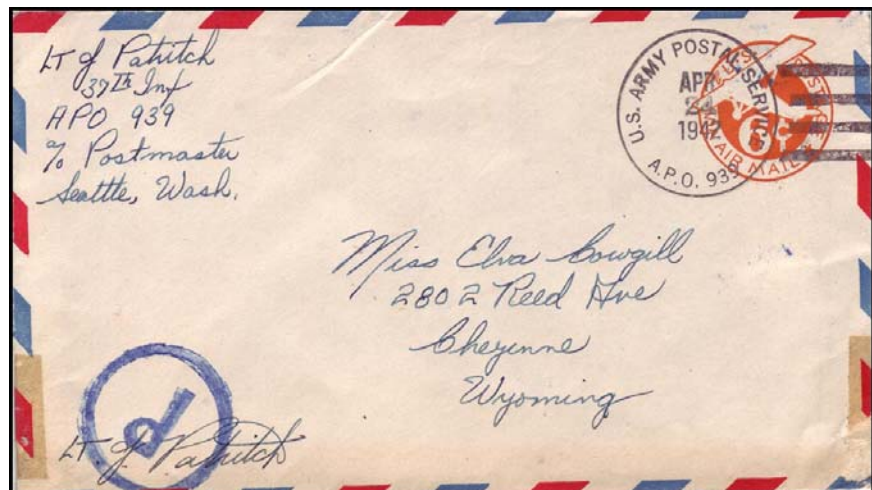 LT J Patritch
37th Inf
APO 939
℅ Postmaster
Seattle, Wash.
U.S. ARMY POSTAL SERVICE
APR
24
1942
A.P.O. 939
6¢
AIR MAIL
Miss Elva Cowgill
2802 Reed Ave
Cheyenne
Wyoming
LT J. Patritch